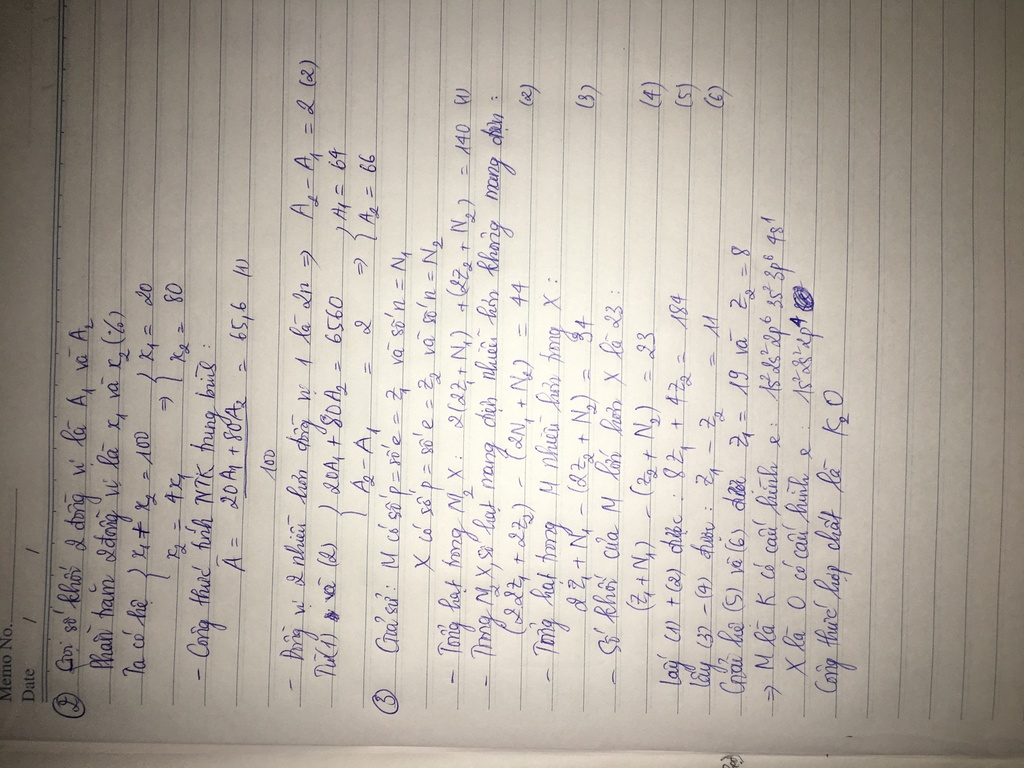 Memo No.
Date / /
② Gọi số khối 2 đồng vị là A₁ và A₂
Phần trăm 2 đồng vị là x₁ và x₂ (%)
Ta có hệ { x₁ + x₂ = 100 => { x₁ = 20
x₂ = 4x₁ x₂ = 80
- Công thức tính NTK trung bình:
Ā = 20A₁ + 80A₂ / 100 = 65,6 (1)
- Đồng vị 2 nhiều hơn đồng vị 1 là 2n => A₂ - A₁ = 2 (2)
Từ (1) và (2) { 20A₁ + 80A₂ = 6560 => { A₁ = 64
A₂ - A₁ = 2 A₂ = 66
③ Giả sử: M có số p = số e = Z₁ và số n = N₁
X có số p = số e = Z₂ và số n = N₂
- Tổng hạt trong M₂X: 2(2Z₁ + N₁) + (2Z₂ + N₂) = 140 (1)
- Trong M₂X, số hạt mang điện nhiều hơn không mang điện:
(2.2Z₁ + 2Z₂) - (2N₁ + N₂) = 44 (2)
- Tổng hạt trong M nhiều hơn trong X:
2Z₁ + N₁ - (2Z₂ + N₂) = 34 (3)
- Số khối của M lớn hơn X là 23:
(Z₁ + N₁) - (Z₂ + N₂) = 23 (4)
Lấy (1) + (2) được: 8Z₁ + 4Z₂ = 184 (5)
Lấy (3) - (4) được: Z₁ - Z₂ = 11 (6)
Giải hệ (5) và (6) được Z₁ = 19 và Z₂ = 8
=> M là K có cấu hình e: 1s²2s²2p⁶3s²3p⁶4s¹
X là O có cấu hình e: 1s²2s²2p⁴
Công thức hợp chất là K₂O